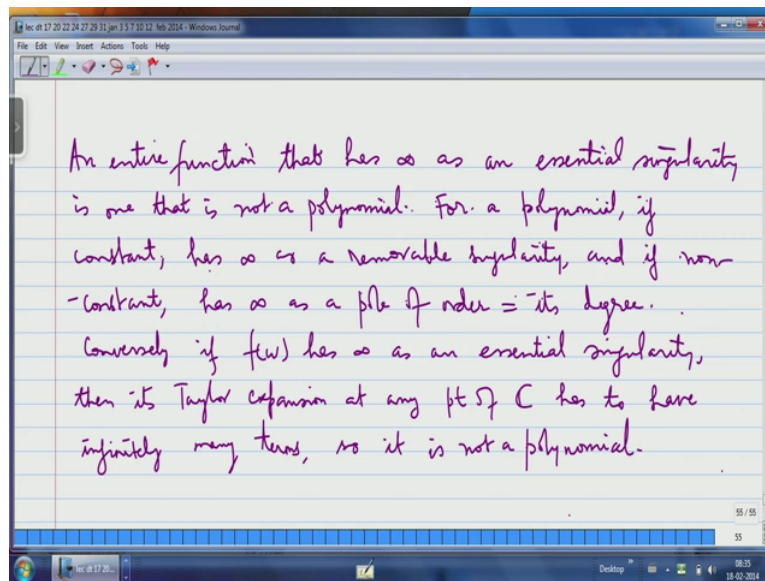 lec dt 17 20 22 24 27 29 31 jan 3 5 7 10 12 feb 2014 - Windows Journal
File Edit View Insert Actions Tools Help
An entire function that has ∞ as an essential singularity
is one that is not a polynomial. For a polynomial, if
constant, has ∞ as a removable singularity, and if non-
-constant, has ∞ as a pole of order = its degree.
Conversely if f(w) has ∞ as an essential singularity,
then its Taylor expansion at any pt of C has to have
infinitely many terms, so it is not a polynomial.
55 / 55
55
lec dt 17 20...
Desktop
08:35
18-02-2014